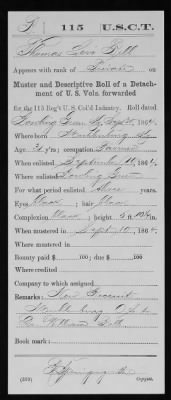 G | 115 | U.S.C.T.
Thomas Levi Bell
Appears with rank of Private on
Muster and Descriptive Roll of a Detach-
ment of U. S. Vols. forwarded
for the 115 Reg't U.S. Col'd Infantry. Roll dated
Bowling Green Ky Sept 20, 1864.
Where born Ky
Age 21 y'rs; occupation Farmer
When enlisted September 10, 1864.
Where enlisted Bowling Green
For what period enlisted three years.
Eyes Black; hair Black
Complexion Black; height 5 ft. in.
When mustered in Sept 10, 1864.
Where mustered in
Bounty paid $ 100; due $ 100
Where credited
Company to which assigned
Remarks: Recruit
Co.
William Bell
Book mark:
(339) Copyist.